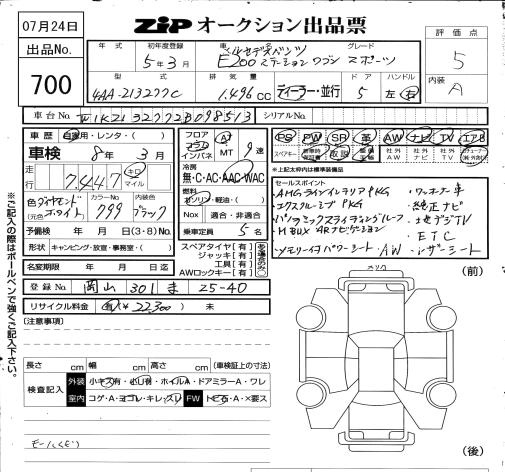 07月24日
ZIP オークション出品票
評価点
5
出品No.
700
年式
初年度登録
5年3月
車名
メルセデスベンツ
E200 ステーションワゴン
グレード
スポーツ
型式
4AA-213277C
排気量
1,496 CC
ディーラー・並行
ドア
5
ハンドル
左・右
内装
A
車台No.
シリアルNo.
車歴 自家用・レンタ・( )
車検 8年3月
走行
7,447
キロ
マイル
色
(元色)
ダイヤモンドホワイト
カラーNo.
799
内装色
ブラック
予備検 年 月 日 (3・8) No.
形状 キャンピング・放宣・事務室・( )
名変期限 年 月 日迄
登録No. 岡山 301 ま 25-40
リサイクル料金 有(¥22,300) 未
フロア
コラム
インパネ
AT
MT
9速
冷房
無・C・AC・AAC・WAC
燃料
ガソリン・軽油・( )
Nox 適合・非適合
乗車定員 5名
スペアタイヤ[有]
ジャッキ[有]
工具[有]
AWロックキー[有]
ある場合のみ○
PS PW SR 革 AW ナビ TV エアB
スペアキー 新車時保証書 取説 整備手帳 社外AW 社外ナビ 社外TV
※上記太枠は標準装備品
セールスポイント
・AMGラインインテリアPKG ・ワンオーナー車
・エクスクルーシブPKG ・純正ナビ
・パノラミックスライディングルーフ ・地デジTV
・MBUX ARナビゲーション ・ETC
・メモリー付パワーシート ・AW ・レザーシート
※ご記入の際はボールペンで強くご記入下さい。
[注意事項]
長さ cm 幅 cm 高さ cm (車検証上の寸法)
検査記入
外装 小キズ有・小凹有・ホイルA・ドアミラーA・ワレ
室内 コゲ・A・ヨゴレ・キレ・スリ FW トビ石・A・×要ス
(前)
(後)